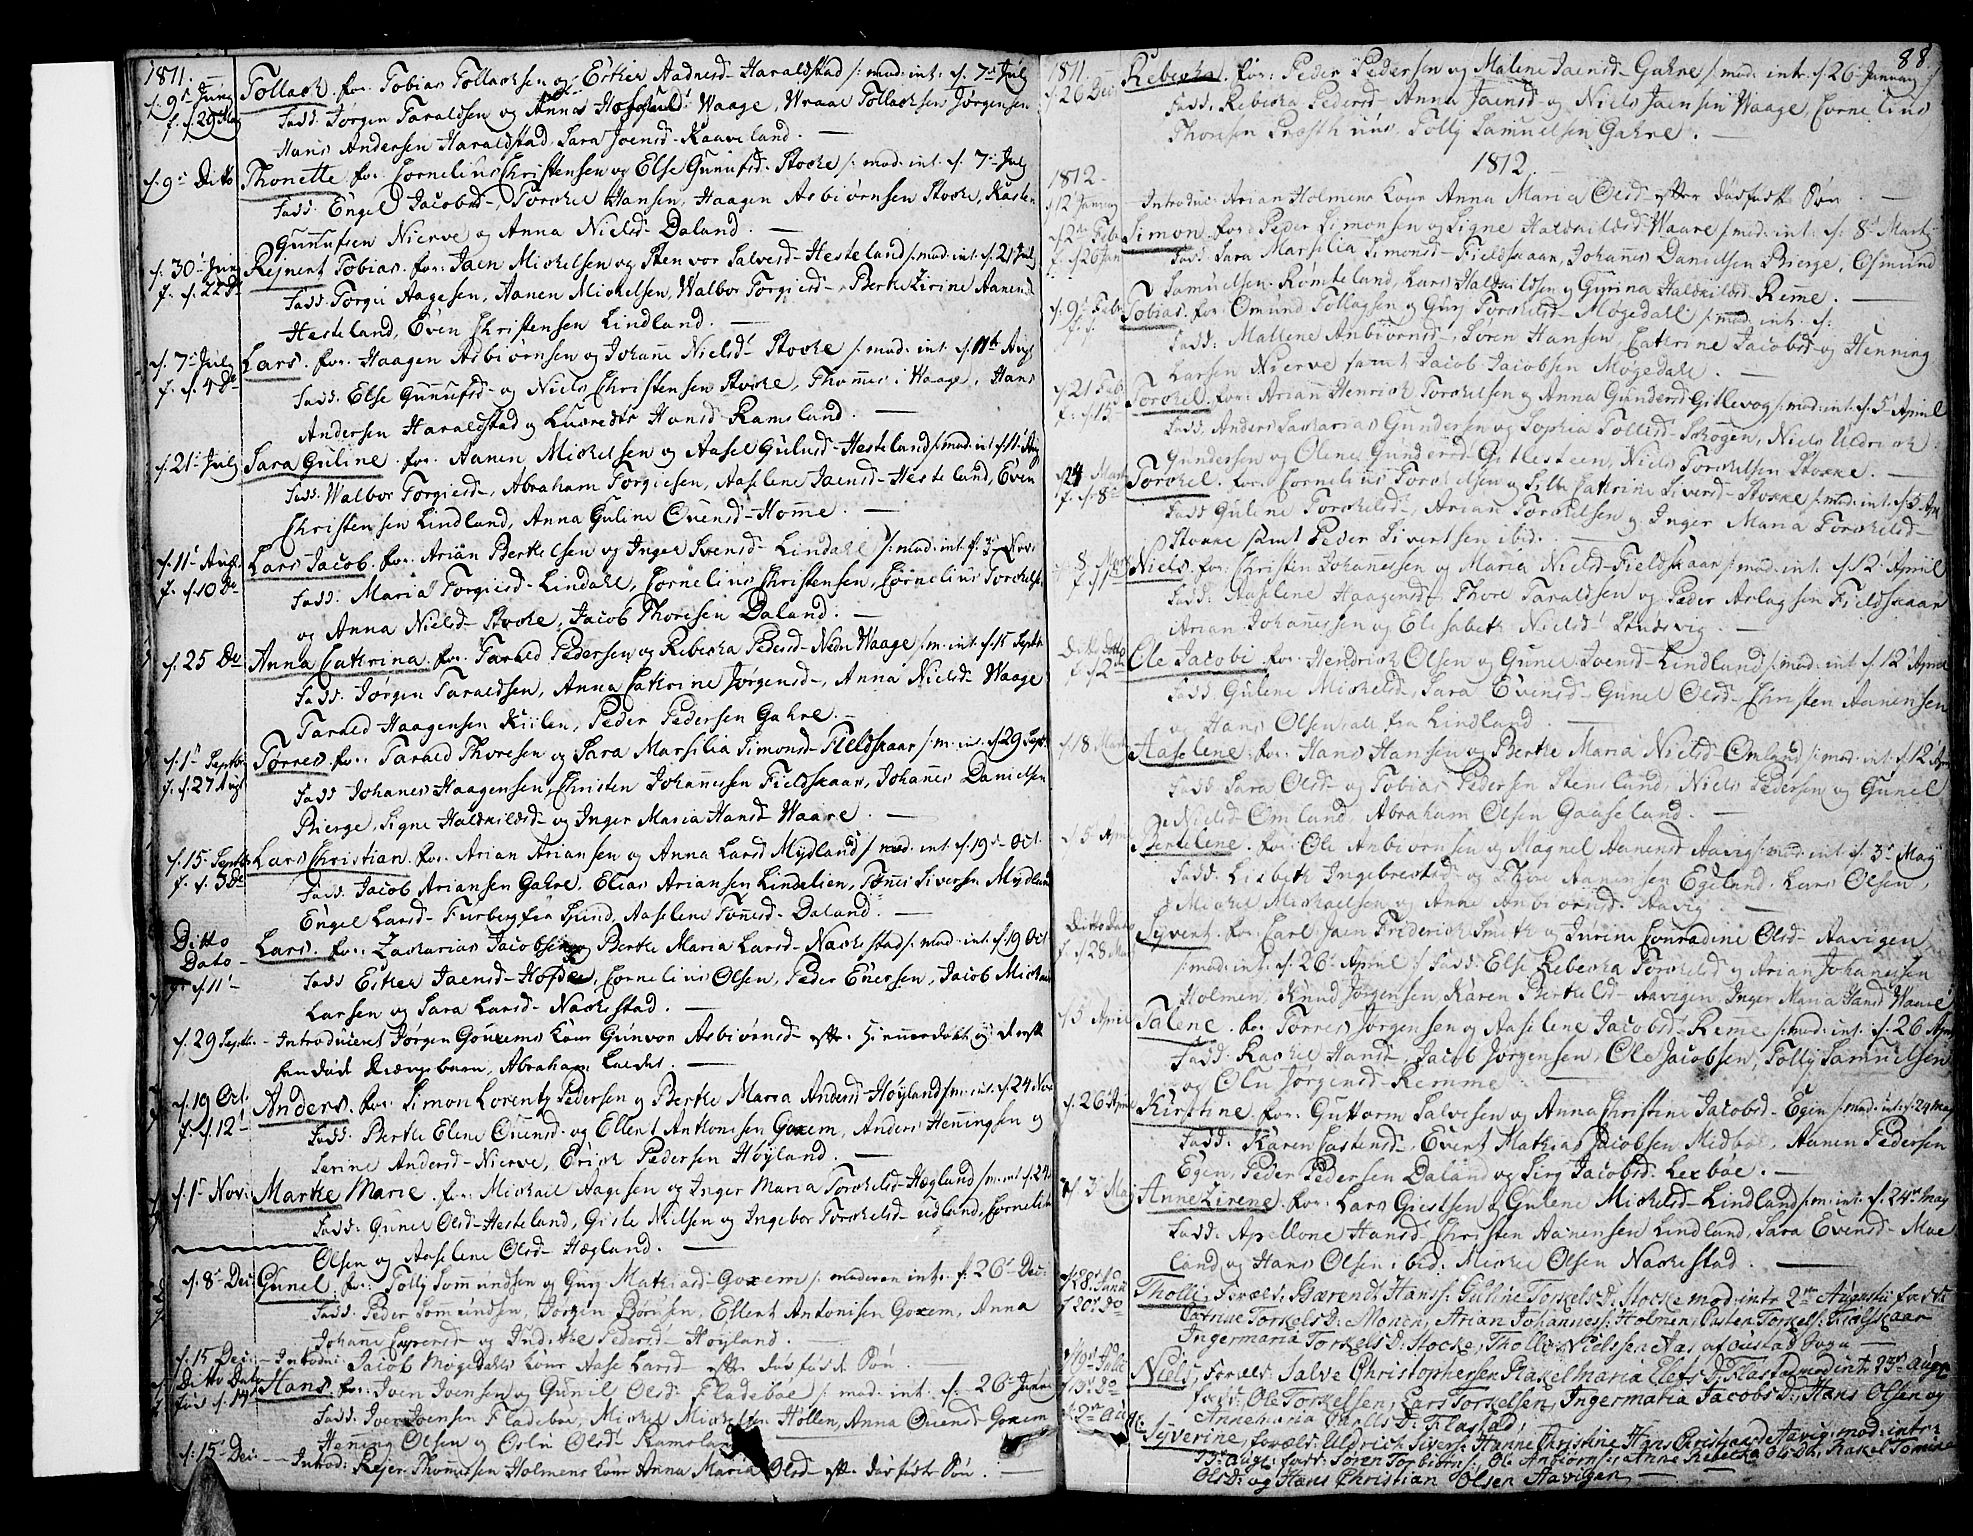 1811.
d. 9de Juny Tollach. for. Tobias Tollachsen og Esther Aadnesd- Haraldstad /: mod: int: d. 7de July
f. d. 29 May Fadd: Jørgen Taraldsen og Waage, Wraal Tollachsen Jørgensen
Hans Andersen Haraldstad, Sara Joensd- Kaaveland.
d. 9de Ditto Thonette for. Cornelius Christensen og Else Gunufsd- Stocke /: mod: int. d. 7de July
Fadd: Engel Jacobsd-, Torckel Hansen, Haagen Asbiørnsen Stocke, Karsten
Gunnufsen Nierve og Anna Nielsd- Daland.
d. 30t Juny Rejnert Tobias. for: Jaen Mickelsen og Stenvor Salvesd- Hesteland /: mod: int: d. 21 July
f. d. 22de Fadd: Torgu Aagesen, Aanen Mickelsen, Walbor Torgiersd- Berte Lirine Aanensd
Hesteland, Even Christensen Lindland.
d. 7de July Lars. for. Haagen Asbiørnsen og Johanne Nielsd- Stocke /: mod: int d. 11te Aug
f. d. 4de Fadd: Else Gunufsd- og Niels Christensen Stocke, Thomes i Waage, Hans
Andersen Haraldstad og Hansd- Ramsland.
d. 21t July Sara Guline for. Aanen Mickelsen og Aasel Gulusd- Hesteland /: mod: int d. 11 Aug
Fadd: Walbor Torgiersd-, Abraham Torgiesen, Aaselene Jaensd- Hesteland, Even
Christensen Lindland, Anna Guline Ovensd- Homme.
d. 11t Aug. Lars Jacob for. Arian Berthelsen og Inger Svensd- Lindahl /: mod: int d. 3de Nov:
f. d. 10de Fadd: Maria Torgiersd- Lindahl, Cornelius Christensen, Cornelius Torckels:
og Anna Nielsd- Stocke, Jacob Thoresen Daland.
d. 25 De Anna Cathrina for. Tarald Pedersen og Rebecka Pedersd- Nedre Waage /: m: int. d. 15 Septbr
Fadd: Jørgen Taraldsen, Anna Cathrine Jørgensd-, Anna Nielsd- Waage
Tarald Haagensen Kiilen, Peder Pedersen Gahre.
d. 1te Septbr Tørres for. Tarald Thoresen og Sara Marsilia Simonsd- Fieldskaar /: m: int. d. 29 Sept
f. d. 27 Aug Fadd Johanes Haagensen, Christen Johannesen Fieldskaar, Johannes Danielsen
Bierge, Signe Haldkildsd- og Inger Maria Hansd- Waare.
d. 15 Septb Lars Christian for. Arian Ariansen og Anna Larsd Mydland /: mod: int d. 19de Oct.
f. d. 3de Fadd. Jacob Ariansen Gahre, Elias Ariansen Lindelien, Tønnes Siversen Mydland
Engel Larsd- Furberg fra Lund, Aaselene Tønesd- Daland.
Ditto Dato Lars. for. Zacharias Jacobsen og Berthe Maria Larsd- Nackestad /: mod: int. d. 19 Oct
f. d. 11t Fadd Esther Jaensd- Hofde, Cornelius Olsen, Peder Enersen, Jacob Mickael
Larsen og Sara Larsd- Nackestad.
d. 29 Septbr - Introduceret Jørgen Goxems Kone Gunvor Asbiørnsd- efter Hiemmedøbt og derefter
hendøde Drengebarn, Abraham kaldet.
d. 19 Oct. Anders for. Simon Lorentz Pedersen og Berthe Maria Andersd- Høyland /: m: int. d. 24 Nov
f. d. 12t Fadd: Berthe Elene Ovensd- og Ellert Anthonisen Goxem, Anders Heningsen og
Serine Andersd- Nierve, Erick Pedersen Høyland.
d. 1te Nov: Marthe Marie. for. Mickael Aagesen og Inger Maria Torckelsd- Hægland /: m: int d. 24
Fadd: Gunel Olsd- Hesteland, Gisle Nielsen og Ingebor Torckelsd- Udland, Cornelius
Olsen og Aaselene Olsd- Hægland.
d. 8t Dec: Gunel. for. Tolly Somundsen og Gury Mathiasd- Goxem /: moderen int: d. 26t Dec:
Fadd: Peder Somundsen, Jørgen Borusen, Ellert Antonisen Goxem, Anna
Johane og Pedersd- Høyland.
d. 15 Dec: - Introdu: Jacob Møgedahls Kone Aase Larsd- efter dødfødt Søn.
Ditto Dato Hans for: Iver Ivensen og Gunil Olsd- Fladebøe /: mod: int: d. 26t January
Fadd: Iver Ivensen Fladebøe, Mickel Mickelsen Høllen, Anna Ovensd- Goxem
Hening Olsen og Oslu Olsd- Ramsland
d. 15t Dec: - Introd: Rejer Thomesen Holmens Kone Anna Maria Olsd- efter dødfødt Søn.
88
1811.
d. 26 Dec: Rebecka. for: Peder Pedersen og Malene Jaensd- Gahre /: mod: intr. d. 26 January
Fadd. Rebecka Pedersd- Anna Jaensd- og Niels Jaensen Waage, Cornelius
Thoresen Præsthuus, Tolly Samuelsen Gahre.
1812.
1812.
d. 12 January - Introduc: Arian Holmens Kone Anna Maria Olsd- efter dødfødt Søn.
d. 2de Feb Simon. for: Peder Simonsen og Signe Haldkildsd- Waare /: mod: int: d. 8t Marty
f. d. 26 Jan Fadd. Sara Marsilia Simonsd- Fieldskaar, Johannes Danielsen Bierge, Osmund
Samuelsen Rømteland, Lars Haldkildsen og Gurina Haldkildsd- Remme.
d. 9t Feb Tobias for: Omund Tollagsen og Gury Torckelsd- Møgedahl /: mod: int: d:
Fadd: Mallene Anbiørnsd-, Søren Hansen, Cathrine Jacobsd- og Henning
Larsen Nierve samt Jacob Jacobsen Møgedahl
d. 21 Feb Torckel for: Arian Henrick Torckelsen og Anna Gundersd Gitlevog /: mod: int: d. 5t April
f. d. 15t Fadd: Anders Zacharias Gundersen og Sophia Tollisd- Schogen, Niels Uldrick
Gundersen og Olene Gundersd Gitlesteen, Niels Torckelsen Stocke.
d. 4 Marty Torckel. for. Cornelius Torckelsen og Silla Cathrine Siversd- Stocke /: mod: int: d. 5 Apr
f. d. 8t Fadd Gulene Torckelsd-, Arian Torckelsen og Inger Maria Torckelsd-
Stocke samt Peder Sivertsen ibid.
d. 8 Marty Niels. for: Christen Johannessen og Maria Nielsd- Fieldskaar /: mod: int. d. 12t April
Fadd: Aaselene Haagensd-, Thore Taraldsen og Peder Aslagsen Fieldskaar
Arian Johannessen og Elisabeth Nielsd- Sandvig
Ditto dito Ole Jacobi for. Hendrick Olsen og Gunel Joensd- Lindland /: mod: int. d. 12t April
f. d. 2de Fadd. Gulene Mickelsd- Sara Evensd- Gunel Olsd- Christen Aanensen
og Hans Olsen alle fra Lindland
d. 18 Marty Aaselene: for. Hans Hansen og Berthe Maria Nielsd- Omland /: mod: int: d. 12 Apr
Fadd: Sara Olsd- og Tobias Pedersen Stensland, Niels Pedersen og Gunel
Nielsd- Omland, Abraham Olsen Gaaseland.
d. 5 April Bertelene. for: Ole Anbiørnsen og Magnel Aanensd Aavig /: mod: int d. 3t May
Fadd: Lisbeth Ingebretsd- og Thore Aanensen Egeland. Lars Olsen,
Mickel Mickelsen og Anne Anbiørnsd- Aavig.
Ditto Dato Syvert. for. Carl Jaen Friderick Smith og Jurine Conradine Olsd- Aavigen
f. d. 28 Mar /: mod: int: d. 26t April :/ Fadd: Else Rebecka Torckelsd- og Arian Johanessen
Holmen, Knud Jørgensen, Karen Berthelsd- Aavigen, Inger Maria Hansd Waare
d. 5 April Talene. for Tørres Jørgensen og Aaselene Jacobsd- Reme /: mod: int. d. 26 Apr
Fadd: Rackel Hansd-, Jacob Jørgensen, Ole Jacobsen, Tolly Samuelsen
og Olu Jørgensd- Remme.
d. 26 April Kirstine. for. Guttorm Salvesen og Anna Christine Jacobsd- Egen /: mod: int: d. 24 May
Fadd: Karen Castensd- Evert Mathias Jacobsen Midboe, Aanen Pedersen
Egen, Peder Pedersen Daland og Siri Jacobsd- Lexbøe.
d. 3t May Anne Lirene. for. Lars Gieslsen og Gulene Mickelsd- Lindland /: m: int: d. 24de May
Fadd: Apellone Hansd- Christen Aanensen Lindland, Sara Evensd- Moe
land og Hans Olsen ibid: Mickel Olsen Nackestad.
d. 28t Juni Tholle, Foræld: Bærend Hanss: Guline Torkels D: Stocke mod: intr 2den Augusti fadd:
f 20t Do Catrine Torkels D: Monen, Arian Johannes: Holmen, Casten Torkels: Fieldskaar
Ingermaria Torkels D: Stocke, Tholle Nielssen
d 19t Julii Niels, Foræld: Salve Christophersen Rakel maria Elefs D: Flastad mod intr 23de Aug:
f 13t Do fadd: Ole Torkelsen, Lars Torkelsen, Ingermaria Jacobs D: Hans Olsen og
Annemaria D: Flastad.
d 2den Aug: Syverine, foræld: Uldrich Sivers: Hanne Christine Hans D: Aavig. mod: intr:
23de aug: fadd: Søren Torbiørns: Ole Anbiørns: Anne Rebecka Ols D: Rakel Tomine
Ols D: og Hans Christian Olsen Aavigen